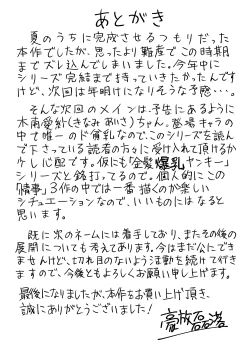 あとがき
夏のうちに完成させるつもりだった
本作でしたが、思ったより難産でこの時期
までズレ込んでしまいました。今年中に
シリーズ完結まで持っていきたかったんです
けど、次回は年明けになりそうな予感…。
そんな次回のメインは、予告にあるように
木南愛紗(きなみ あいさ)ちゃん。登場キャラの
中で唯一のド貧乳なので、このシリーズを読ん
で下さっている読者の方々に受け入れて頂けるか
少し心配です。仮にも「金髪爆乳ヤンキー」
シリーズと銘打ってるので。個人的にこの
「情事」3作の中では一番描くのが楽しい
シチュエーションなので、いいものにはなると
思います。
既に次のネームには着手しており、またその後の
展開についても考えてあります。今はまだ公にでき
ませんけど、切れ目のないよう活動を続けて行き
ますので、今後ともよろしくお願い申し上げます。
最後になりましたが、本作をお買い上げ頂き、
誠にありがとうございました!